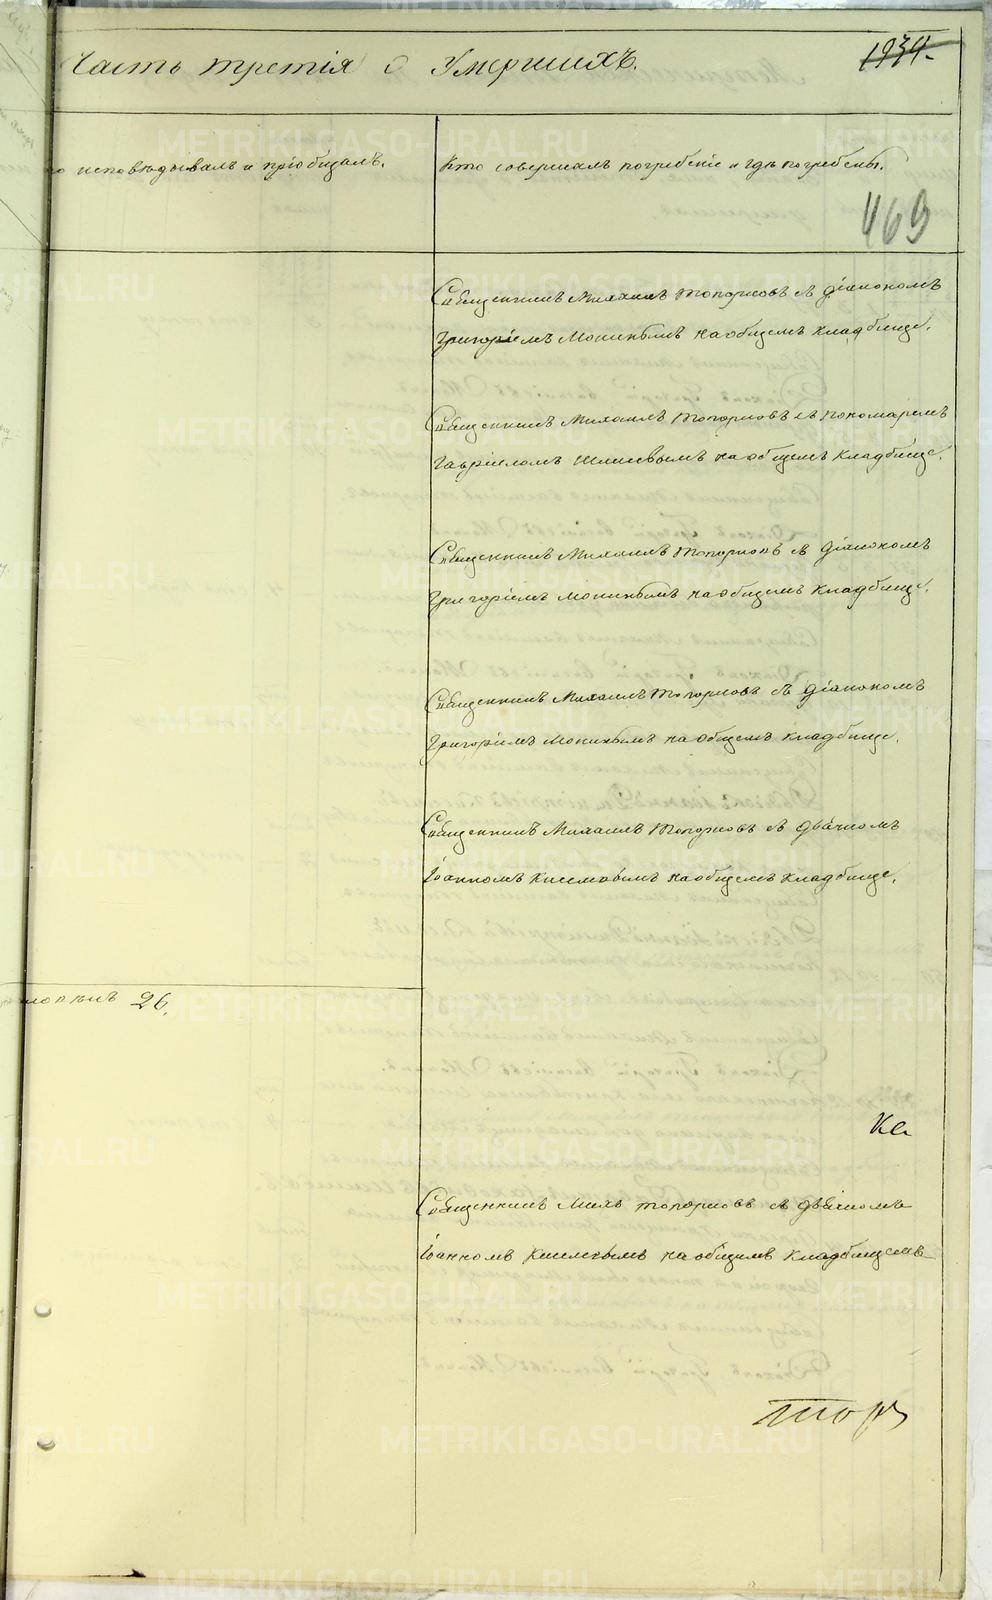 Часть третія о Умершихъ.
1934.
исповѣдывалъ и пріобщалъ.
Кто совершалъ погребеніе и гдѣ погребены.
469
Священникъ Михаилъ Топорковъ съ діакономъ
Григоріемъ Мокинымъ на общемъ кладбище.
Священникъ Михаилъ Топорковъ съ пономаремъ
Гавріиломъ на общемъ кладбище.
Священникъ Михаилъ Топорковъ съ діакономъ
Григоріемъ Мокинымъ на общемъ кладбище.
Священникъ Михаилъ Топорковъ съ діакономъ
Григоріемъ Мокинымъ на общемъ кладбище.
Священникъ Михаилъ Топорковъ съ дьячкомъ
Іоанномъ Киселевымъ на общемъ кладбище.
26.
Священникъ Мих. Топорковъ съ дьячкомъ
Іоанномъ Киселевымъ на общемъ кладбищемъ
METRIKI.GASO-URAL.RU